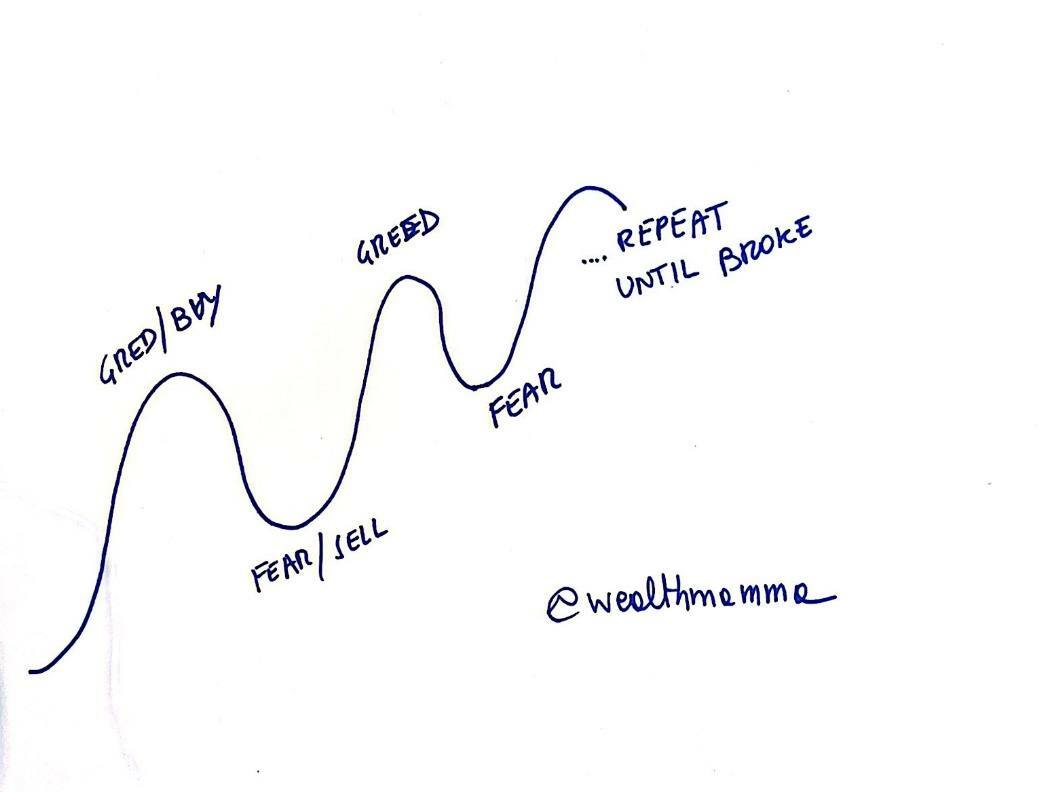 GREED
.... REPEAT
UNTIL BROKE
GRED/BUY
FEAR
FEAR/SELL
@wealthmamma